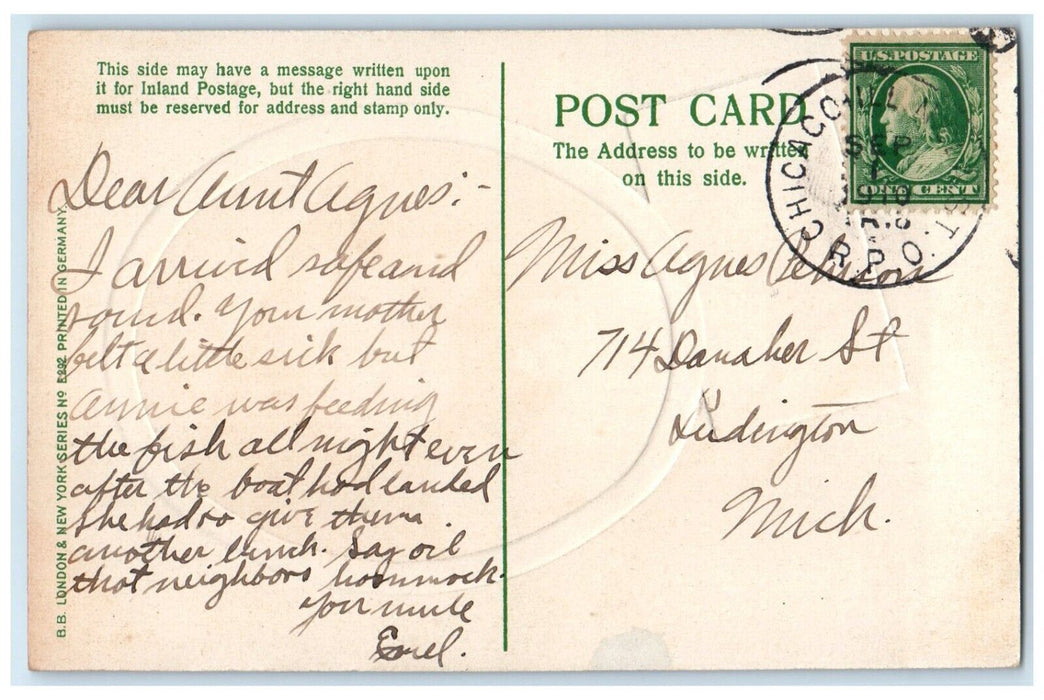 This side may have a message written upon
it for Inland Postage, but the right hand side
must be reserved for address and stamp only.
POST CARD
The Address to be written
on this side.
U.S. POSTAGE
ONE CENT
CHICAGO
SEP
1
R.P.O.
Dear Aunt Agnes:-
I arrived safe and
sound. Your mother
felt a little sick but
Annie was feeding
the fish all night even
after the boat had landed
she had to give them
another lunch. Say oil
that neighbors hammock.
Your
Miss Agnes
714 Danaher St
Ludington
Mich.
B.B. LONDON & NEW YORK SERIES No E292 PRINTED IN GERMANY